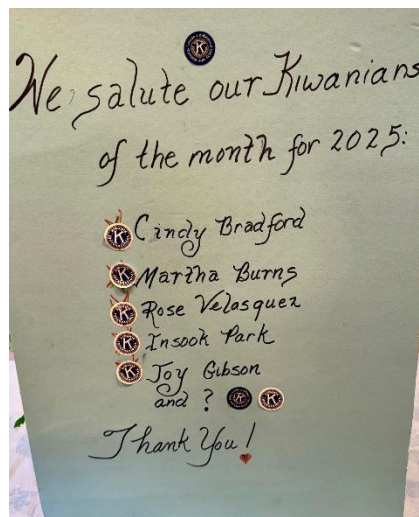 We salute our Kiwanians
of the month for 2025:
Cindy Bradford
Martha Burns
Rose Velasquez
Insook Park
Joy Gibson
and ?
Thank You!